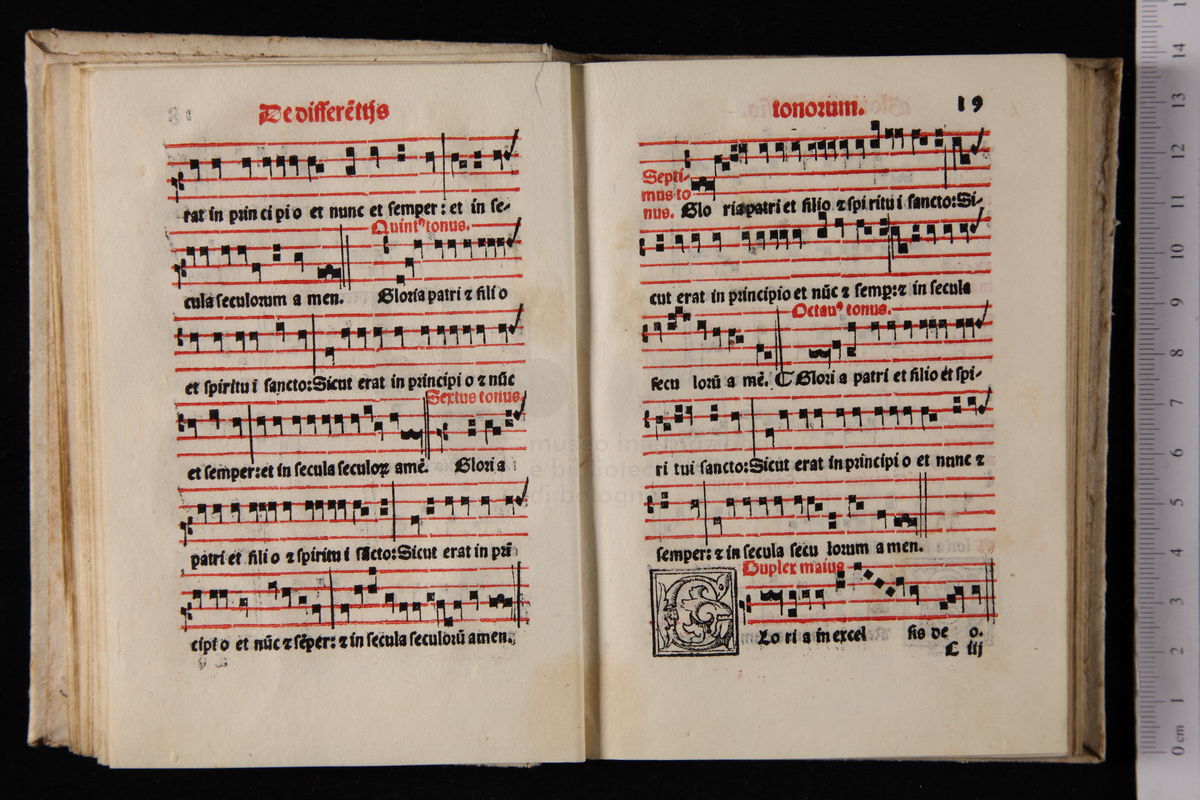 De differētijs
rat in principio et nunc et semper: et in se-
Quintꝰ tonus.
cula seculorum amen. Gloria patri ⁊ filio
et spiritui sancto: Sicut erat in principio ⁊ nūc
Sextus tonus.
et semper: et in secula seculoꝝ amē. Gloria
patri et filio ⁊ spiritui sācto: Sicut erat in pri
cipio et nūc ⁊ sēper: ⁊ in secula seculorū amen.
tonorum. 19
Septi-
mus to
nus. Glo ria patri et filio ⁊ spiritui sancto: Si-
cut erat in principio et nūc ⁊ semp: ⁊ in secula
Octauꝰ tonus.
secu lorū a mē. C Glori a patri et filio et spi-
ri tui sancto: Sicut erat in principio et nunc ⁊
semper: ⁊ in secula secu lorum amen.
Duplex maius
G Lo ri a in excel sis de o.
C iij
museo internazionale
e biblioteca
di bologna
0 cm 1 2 3 4 5 6 7 8 9 10 11 12 13 14